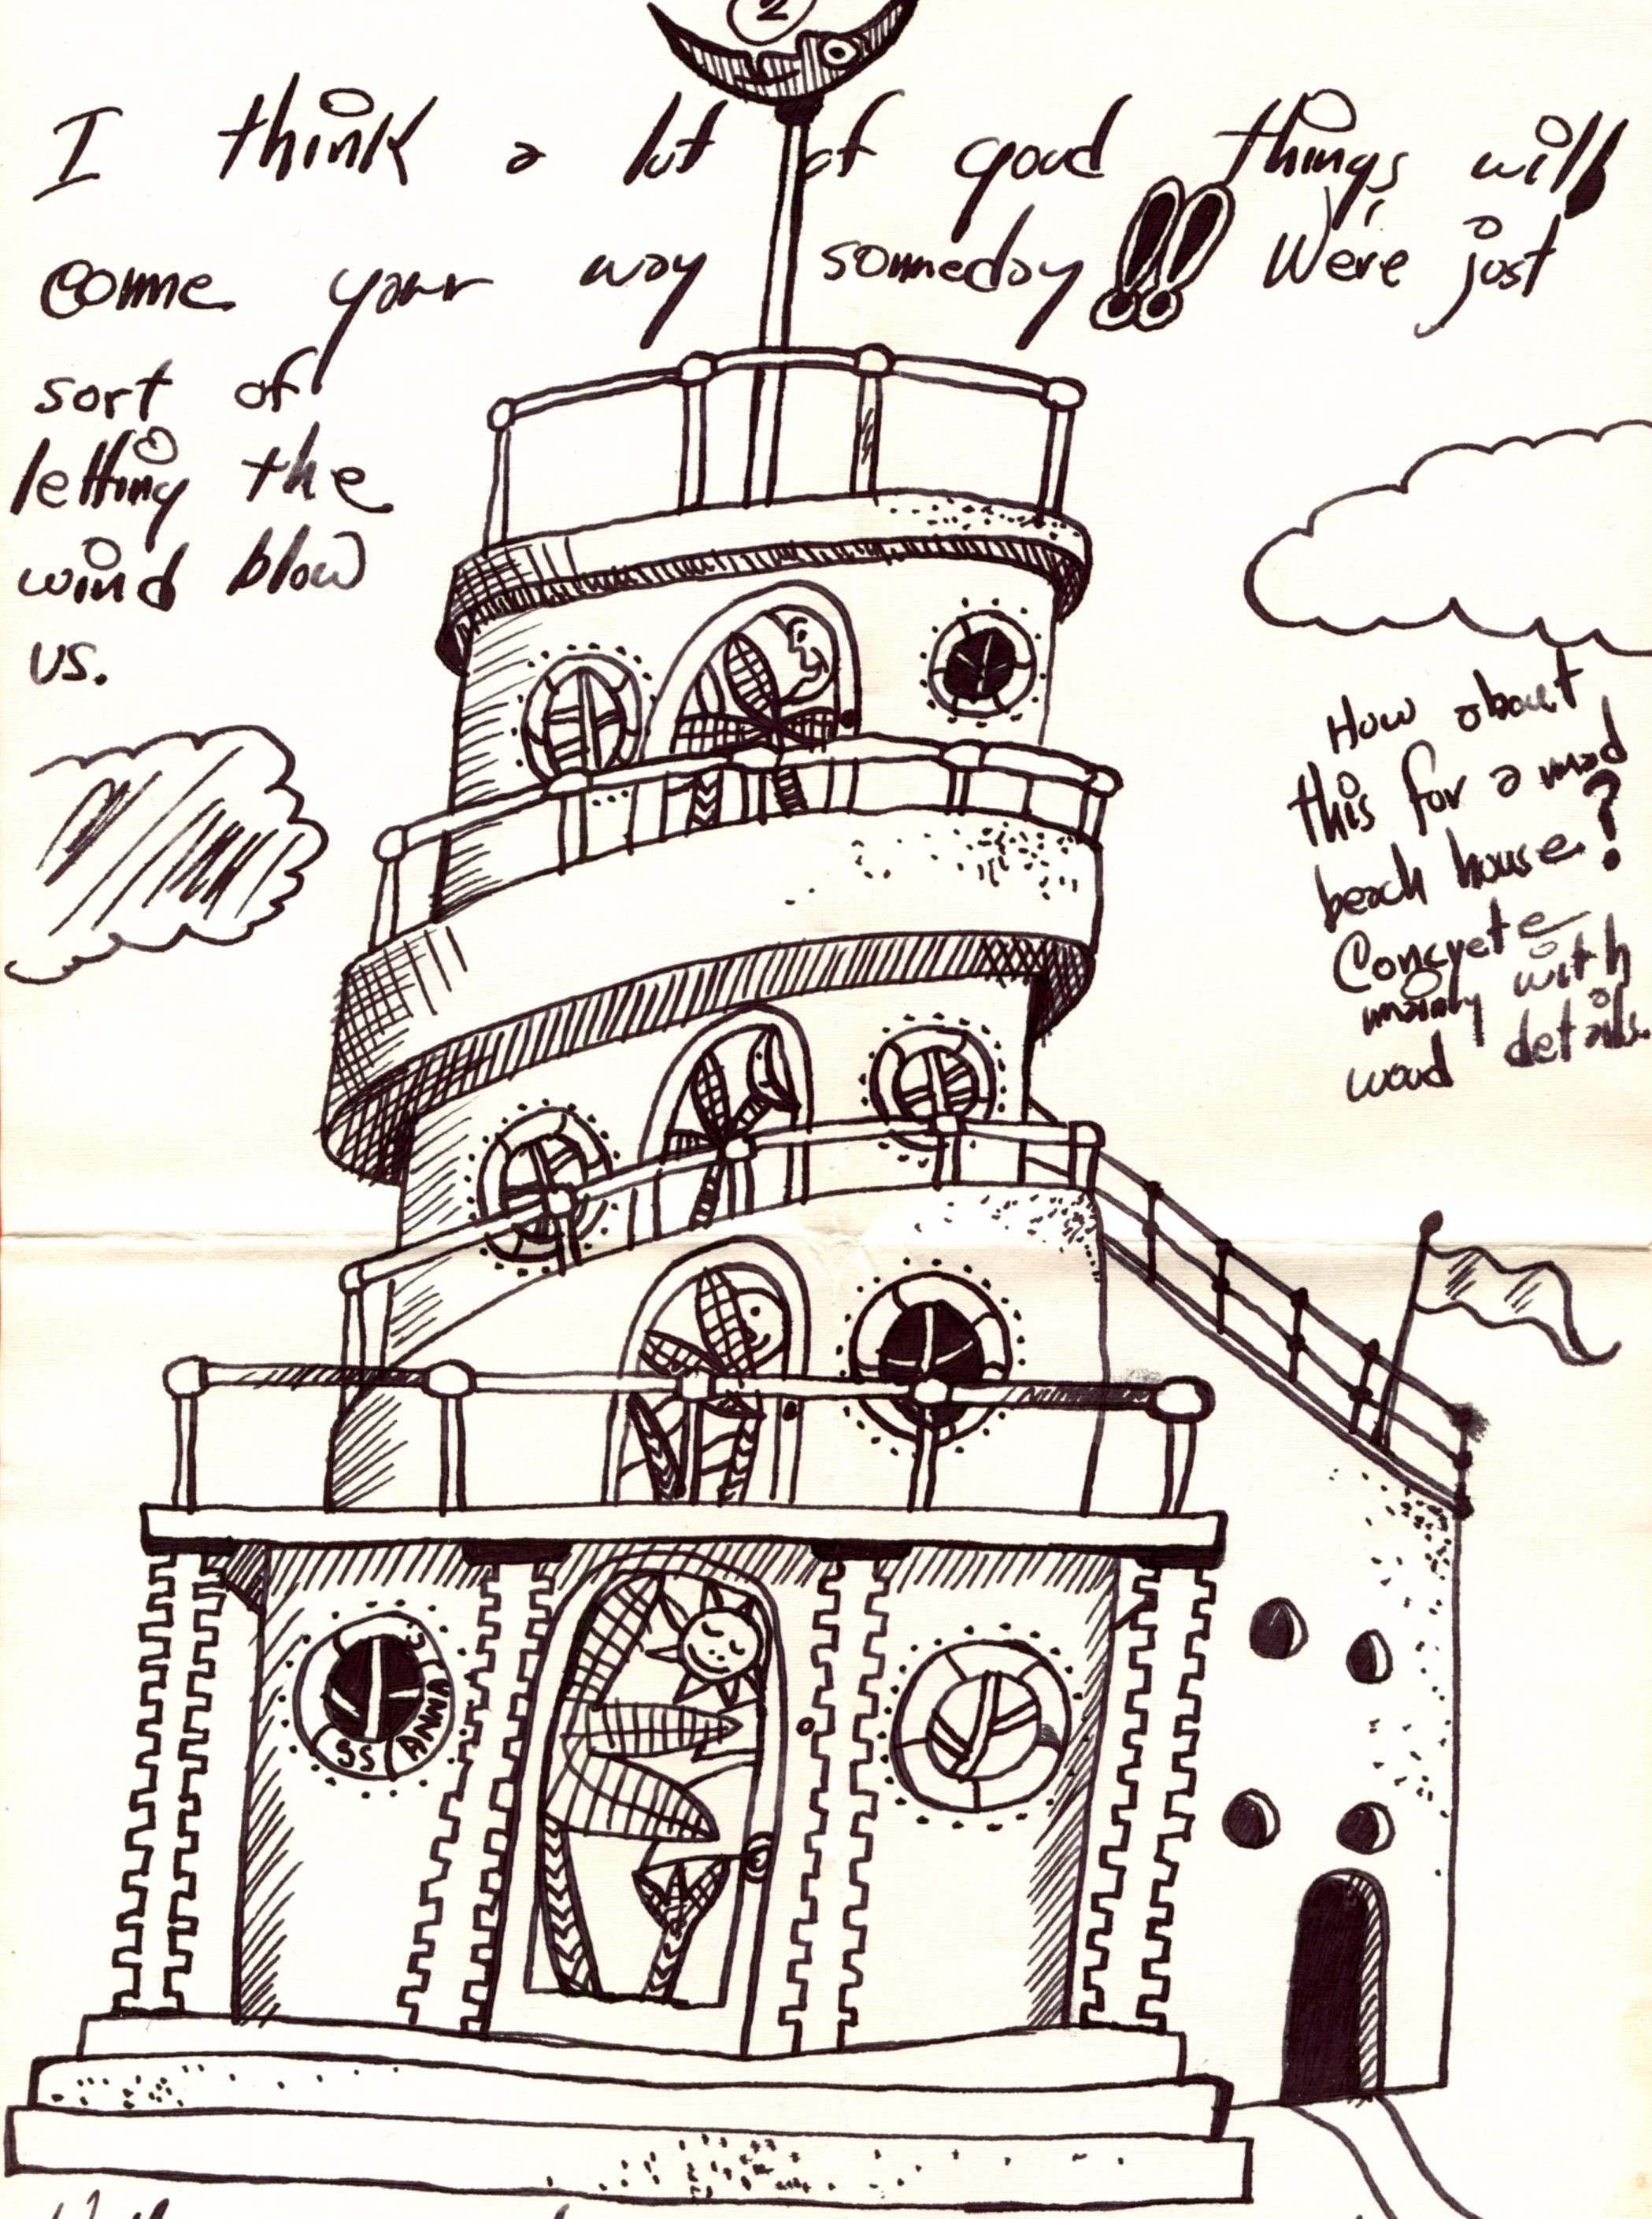 2
I think a lot of good things will
come your way someday!! We're just
sort of
letting the
wind blow
us.
How about
this for a mad
beach house?
Concrete
mainly with
wood details.
SS ANNA